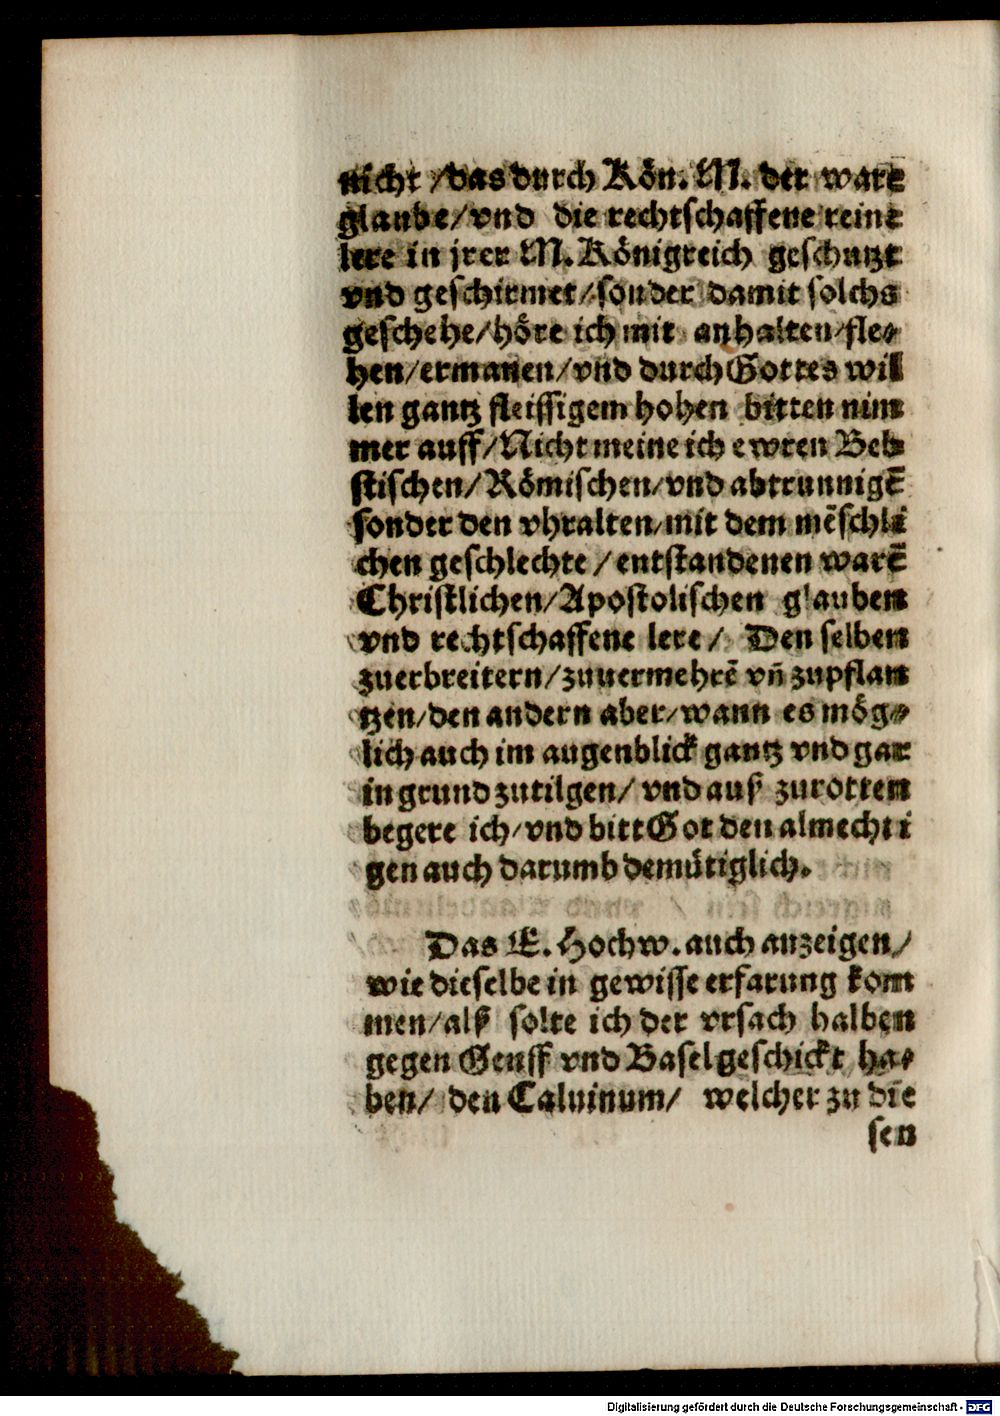 nicht /das durch Kön. M. der ware
glaube/vnd die rechtschaffene reine
lere in jrer M. Königreich geschutzt
vnd geschirmet/sonder damit solchs
geschehe/höre ich mit anhalten/fle⸗
hen/ermanen/vnd durch Gottes wil
len gantz fleissigem hohen bitten nim
mer auff/Nicht meine ich ewren Beb
stischen/Römischen/vnd abtrunnigē
sonder den vhralten/mit dem mēschli
chen geschlechte/entstandenen warē
Christlichen/Apostolischen glauben
vnd rechtschaffene lere/ Den selben
zuerbreitern/zuuermehrē vñ zupflan
tzen/den andern aber/wann es mög⸗
lich auch im augenblick gantz vnd gar
in grund zutilgen/ vnd auß zurotten
begere ich/vnd bitt Got den almechti
gen auch darumb demütiglich.
Das E. Hochw. auch anzeigen/
wie dieselbe in gewisse erfarung kom
men/alß solte ich der vrsach halben
gegen Genff vnd Basel geschickt ha⸗
ben/ den Caluinum/ welcher zu die
sen
Digitalisierung gefördert durch die Deutsche Forschungsgemeinschaft - DFG